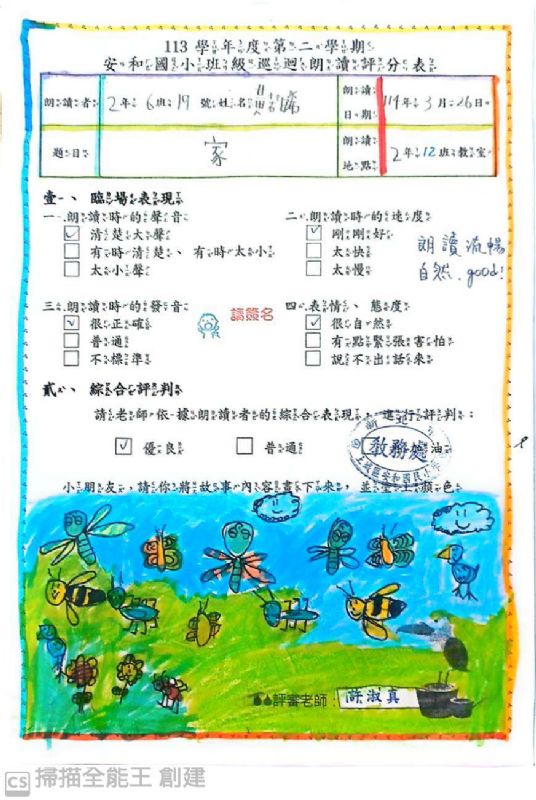 113 學年度第二學期
安和國小班級巡迴朗讀評分表
朗讀者 2年 6班 19 號姓名
朗讀日期 114年 3月 26日
題目 家
朗讀地點 2年12班教室
壹、臨場表現
一、朗讀時的聲音
清楚大聲
有時清楚、有時太小
太小聲
二、朗讀時的速度
剛剛好
太快
太慢
朗讀流暢
自然、good!
三、朗讀時的發音
很正確
普通
不標準
請簽名
四、表情、態度
很自然
有點緊張害怕
說不出話來
貳、綜合評判
請老師依據朗讀者的綜合表現,進行評判:
優良
普通
油
教務處
小朋友,請你將故事內容畫下來,並塗上顏色
評審老師:許淑真
CS 掃描全能王 創建